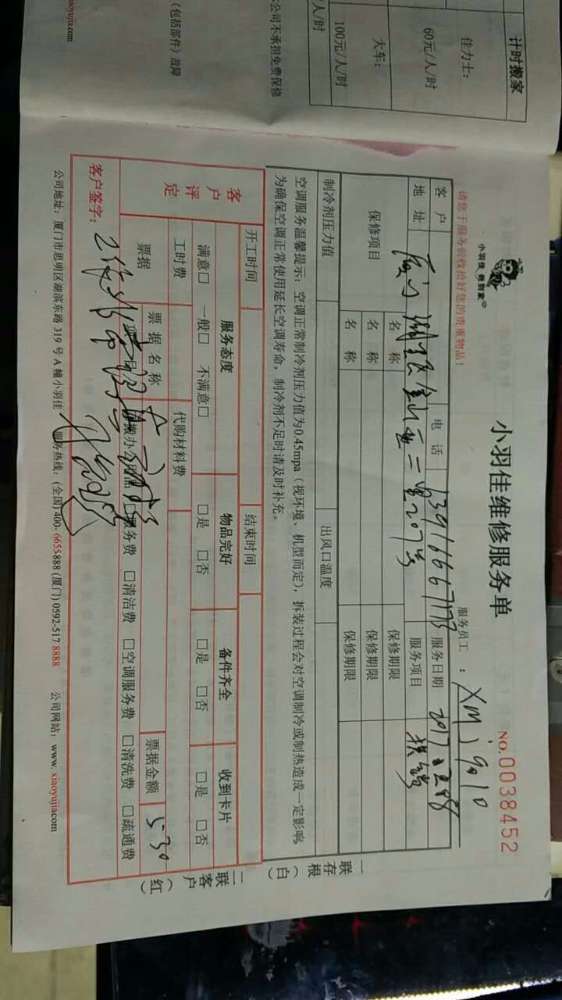 计时搬家
佳力士：
60元/人/时
大车：
100元/人/时
元/人/时
公司不承担免费保修
（包括部件）故障
xiaoyujia.com
小羽佳维修服务单
小羽佳 帮到家
请您于服务前收拾好您的贵重物品！
服务员工：XM
NO.0038452
客户
电话
服务日期 2017
地址
207号
服务项目
保修项目
名称
保修期限
名称
保修期限
名称
保修期限
制冷剂压力值
出风口温度
空调服务温馨提示：空调正常制冷剂压力值为0.45mpa（视环境、机型而定），拆装过程会对空调制冷或制热造成一定影响，
为确保空调正常使用延长空调寿命，制冷剂不足时请及时补充。
开工时间
结束时间
客户评定
服务态度
物品完好
备件齐全
收到卡片
满意□ 一般□ 不满意□
□是 □否
□是 □否
□是 □否
工时费
代购材料费
票据金额 530
票据
票据名称
务费 □清洁费 □空调服务费 □清洗费 □疏通费
客户签字：
一联存根（白）
二联客户（红）
公司地址：厦门市思明区湖滨东路319号A幢小羽佳 服务热线：(全国)400-6655888 (厦门)0592-5178888 公司网站：www.xiaoyujia.com